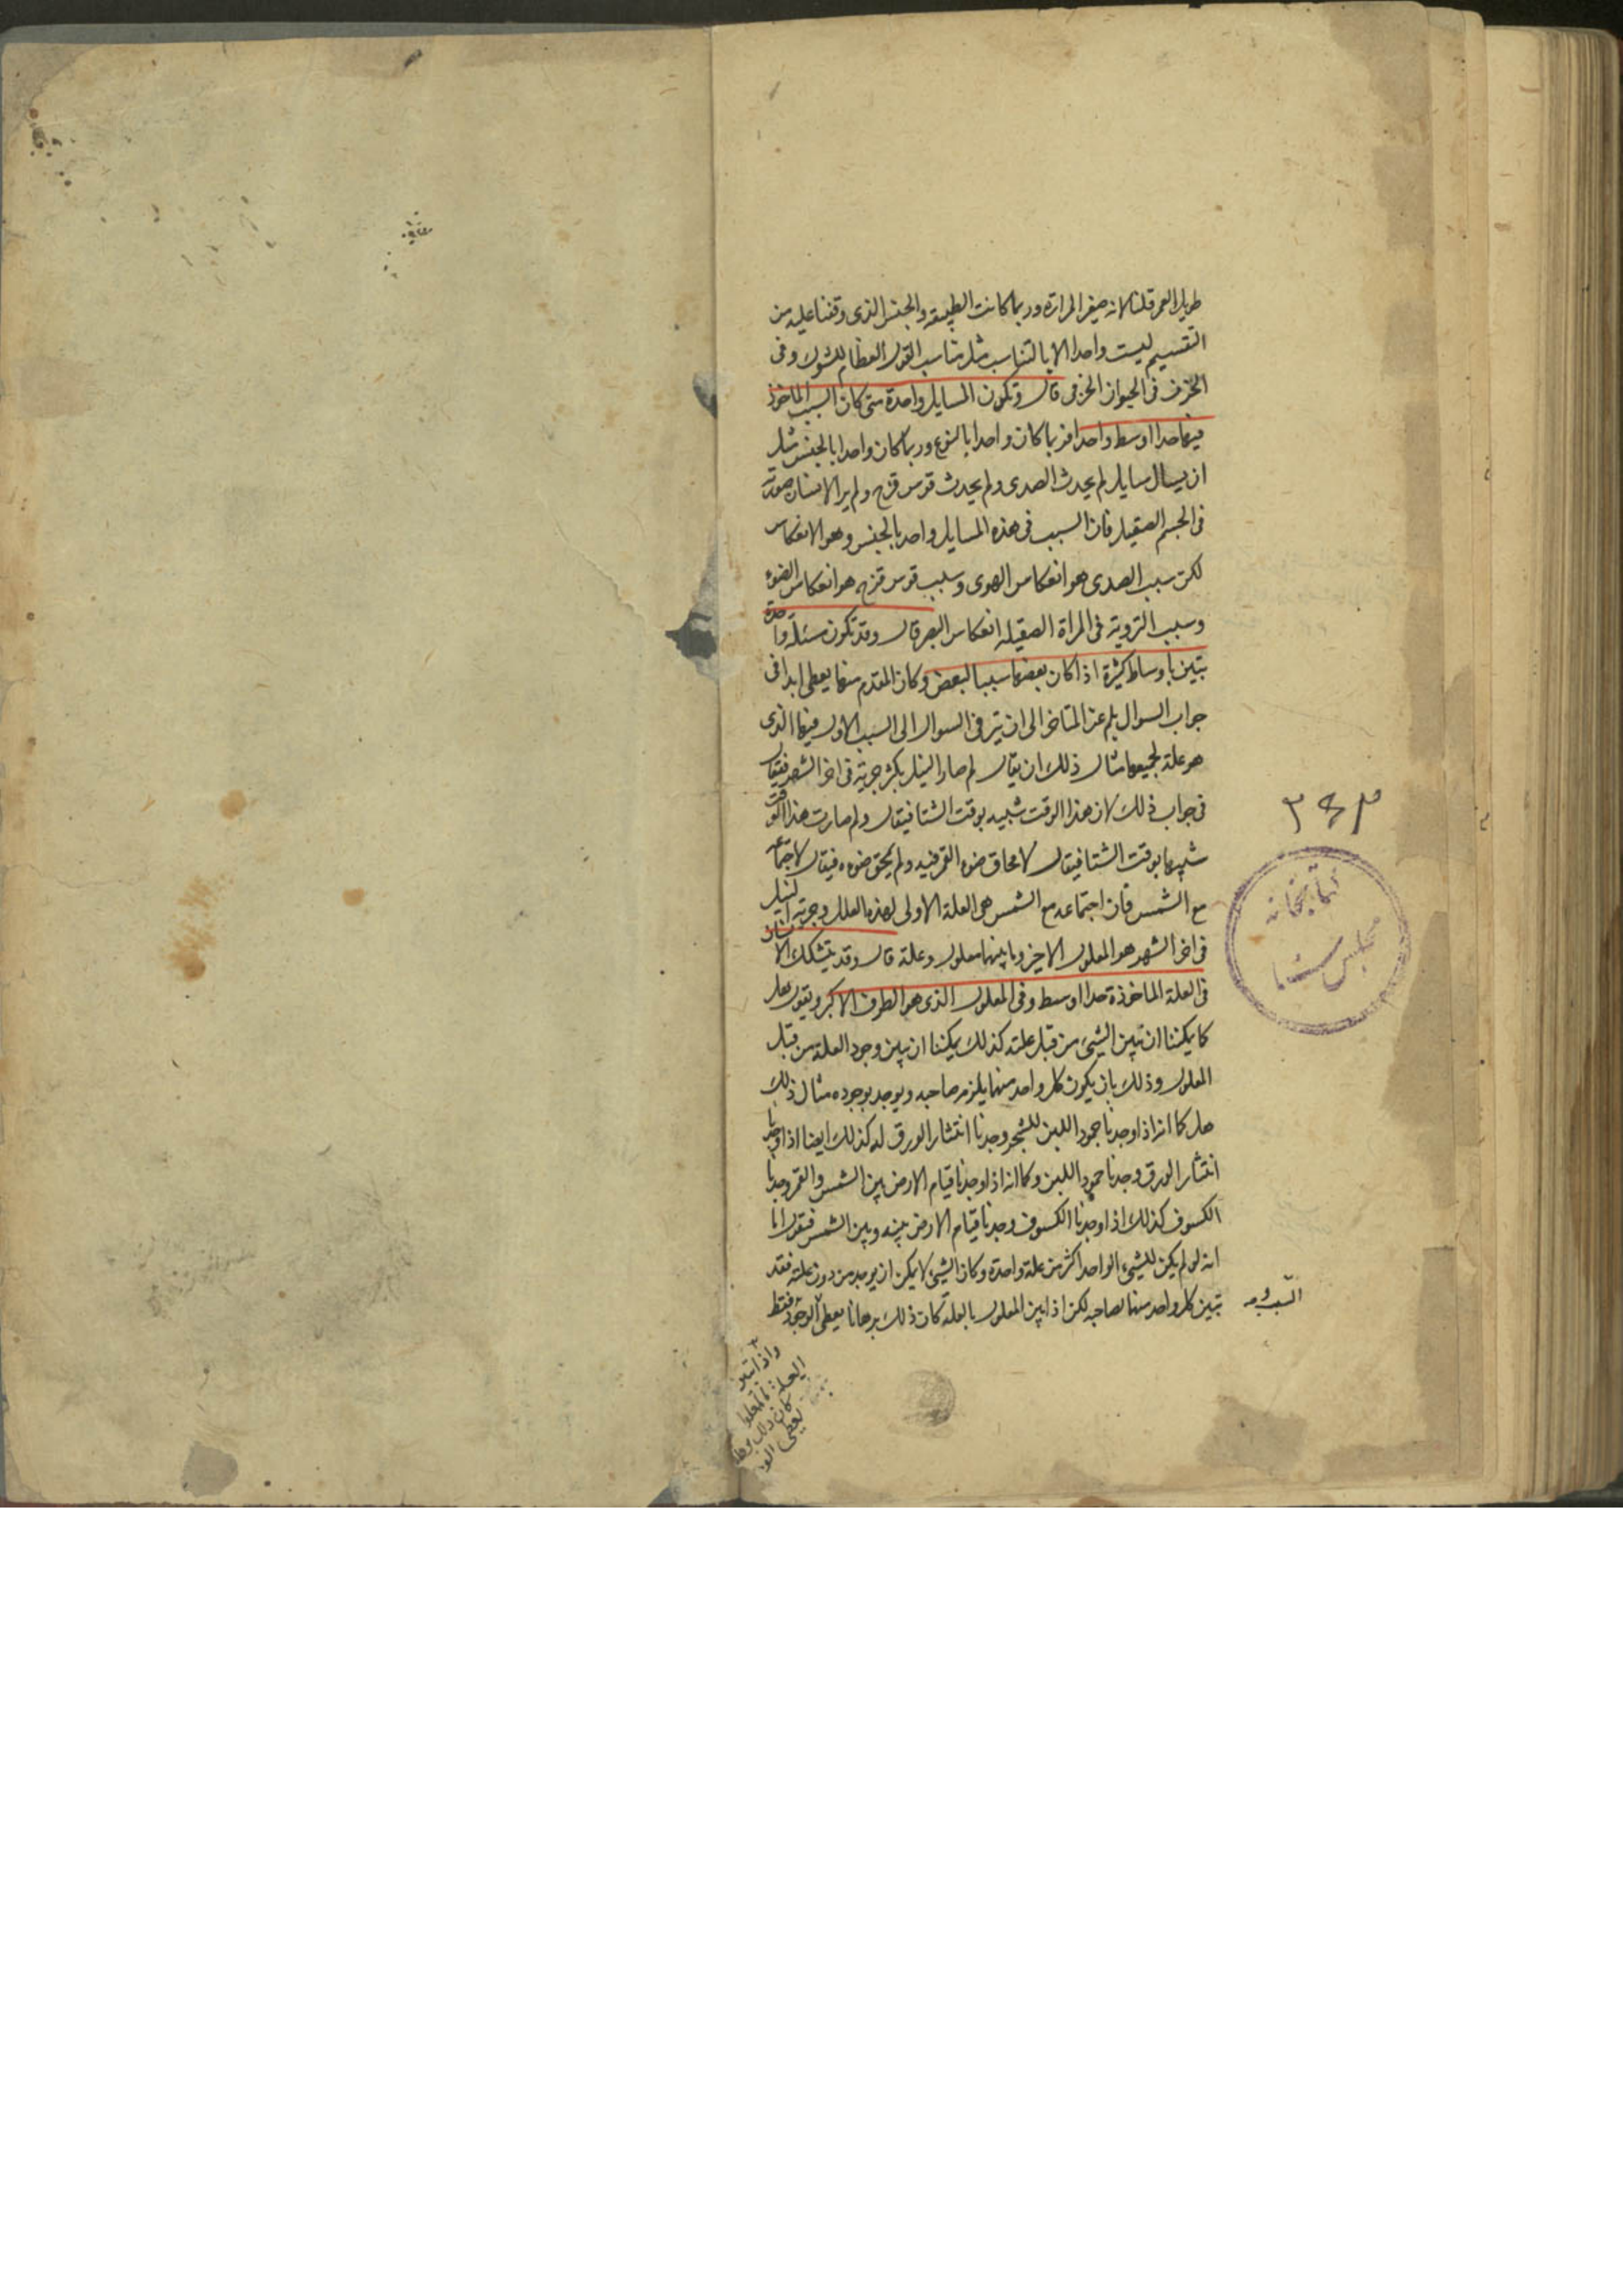 طويل العمر قلنا لانه صغير المرارة وربما كانت الطبيعة والجنس الذى وقفنا عليه من
التقسيم ليست واحدا الا بالتناسب مثل تناسب العظام للشوك وفى
الخزف فى الحيوان الخزفى قال وتكون المسايل واحدة متى كان السبب الماخوذ
فيها حدا اوسط واحدا فربما كان واحدا بالنوع وربما كان واحدا بالجنس مثل
ان يسال سايل لم يحدث الصدى ولم يحدث قوس قزح ولم يرا الانسان صورته
فى الجسم الصقيل فان السبب فى هذه المسايل واحد بالجنس وهو الانعكاس
لكن سبب الصدى هو انعكاس الهوى وسبب قوس قزح هو انعكاس الضوء
وسبب الروية فى المراة الصقيلة انعكاس البصر قال وقد تكون مسئلة واحدة
تبين باوساط كثيرة اذا كان بعضها سببا لبعض وكان المتقدم منها يعطى ابدا فى
جواب السوال بلم عن المتاخر الى ان يترقى السوال الى السبب الاول فيها الذى
هو علة لجميعها مثال ذلك ان يقال لم صار النيل يكثر جريته فى اخر الشهر فيقال
فى جواب ذلك لان هذا الوقت شبيه بوقت الشتا فيقال ولم صارت هذا الوقت
شبيها بوقت الشتا فيقال لامحاق ضوء القمر فيه ولم يمحق ضوءه فيقال لاجتماعه
مع الشمس فان اجتماعه مع الشمس هى العلة الاولى لهذه العلل وجرية النيل
فى اخر الشهر هو المعلول الاخير وما بينهما معلول وعلة قال وقد يتشكك الانسان
فى العلة الماخوذة حدا اوسط وفى المعلول الذى هو الطرف الاكبر ويقول هل
كما يمكننا ان نبين الشيئ من قبل علته كذلك يمكننا ان نبين وجود العلة من قبل
المعلول وذلك بان يكون كل واحد منهما يلزم صاحبه ويوجد بوجوده مثال ذلك
هل كما انا اذا وجدنا جمود اللبن للشجر وجدنا انتثار الورق له كذلك ايضا اذا وجدنا
انتثار الورق وجدنا جمود اللبن وكما انه اذا وجدنا قيام الارض بين الشمس والقمر وجدنا
الكسوف كذلك اذا وجدنا الكسوف وجدنا قيام الارض بينه وبين الشمس فنقول انا
انه لو لم يكن للشيئ الواحد اكثر من علة واحدة وكان الشيئ لا يمكن ان يوجد من دون علته فقد
تبين كل واحد منهما بصاحبه لكن اذا بين المعلول بالعلة كان ذلك برهانا يعطى الوجود فقط
السبب و
واذا بين
العلة بالمعلول
كان ذلك برهانا
يعطى الو
٣٤٣
كتابخانه
مجلس سنا